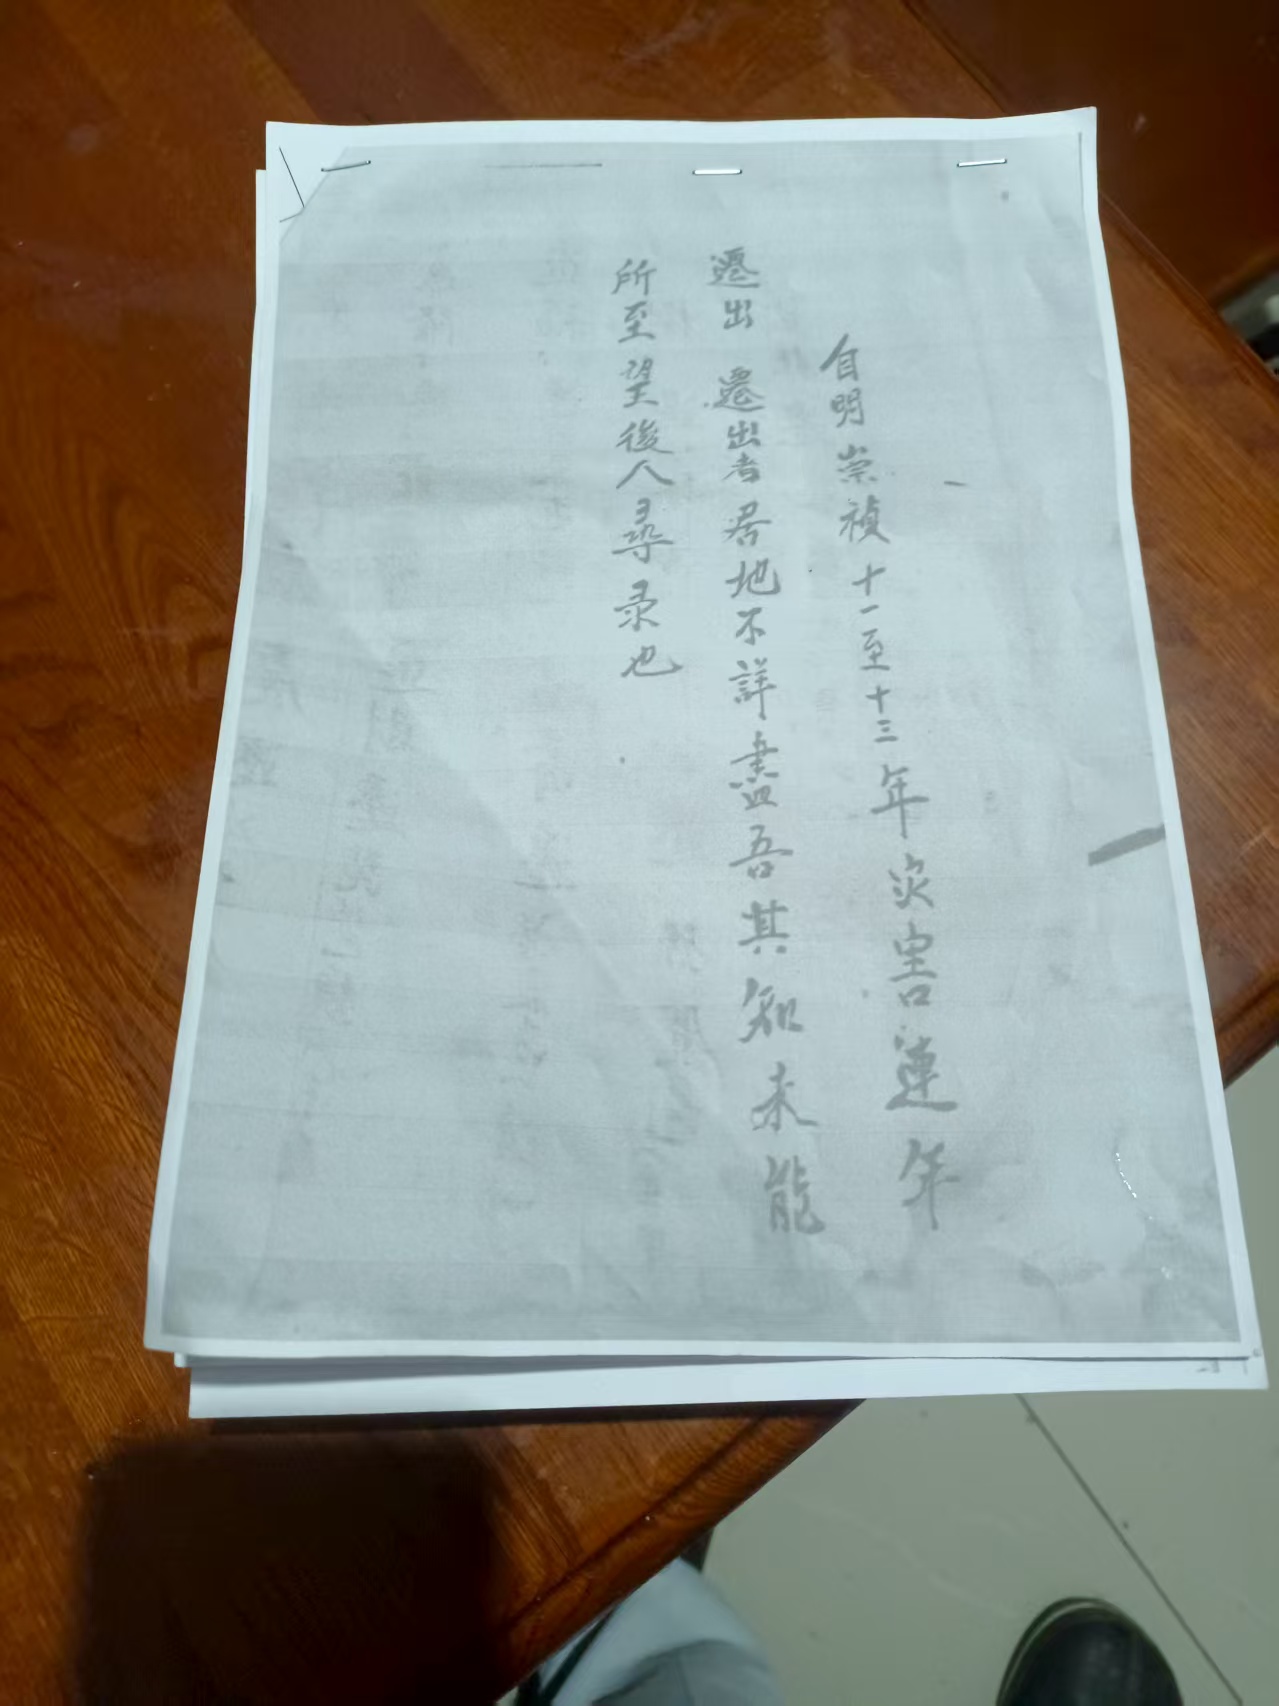 自明崇禎十一至十三年灾害連年
遷出 遷出者居地不詳盡吾其知未能
所至望後人尋录也